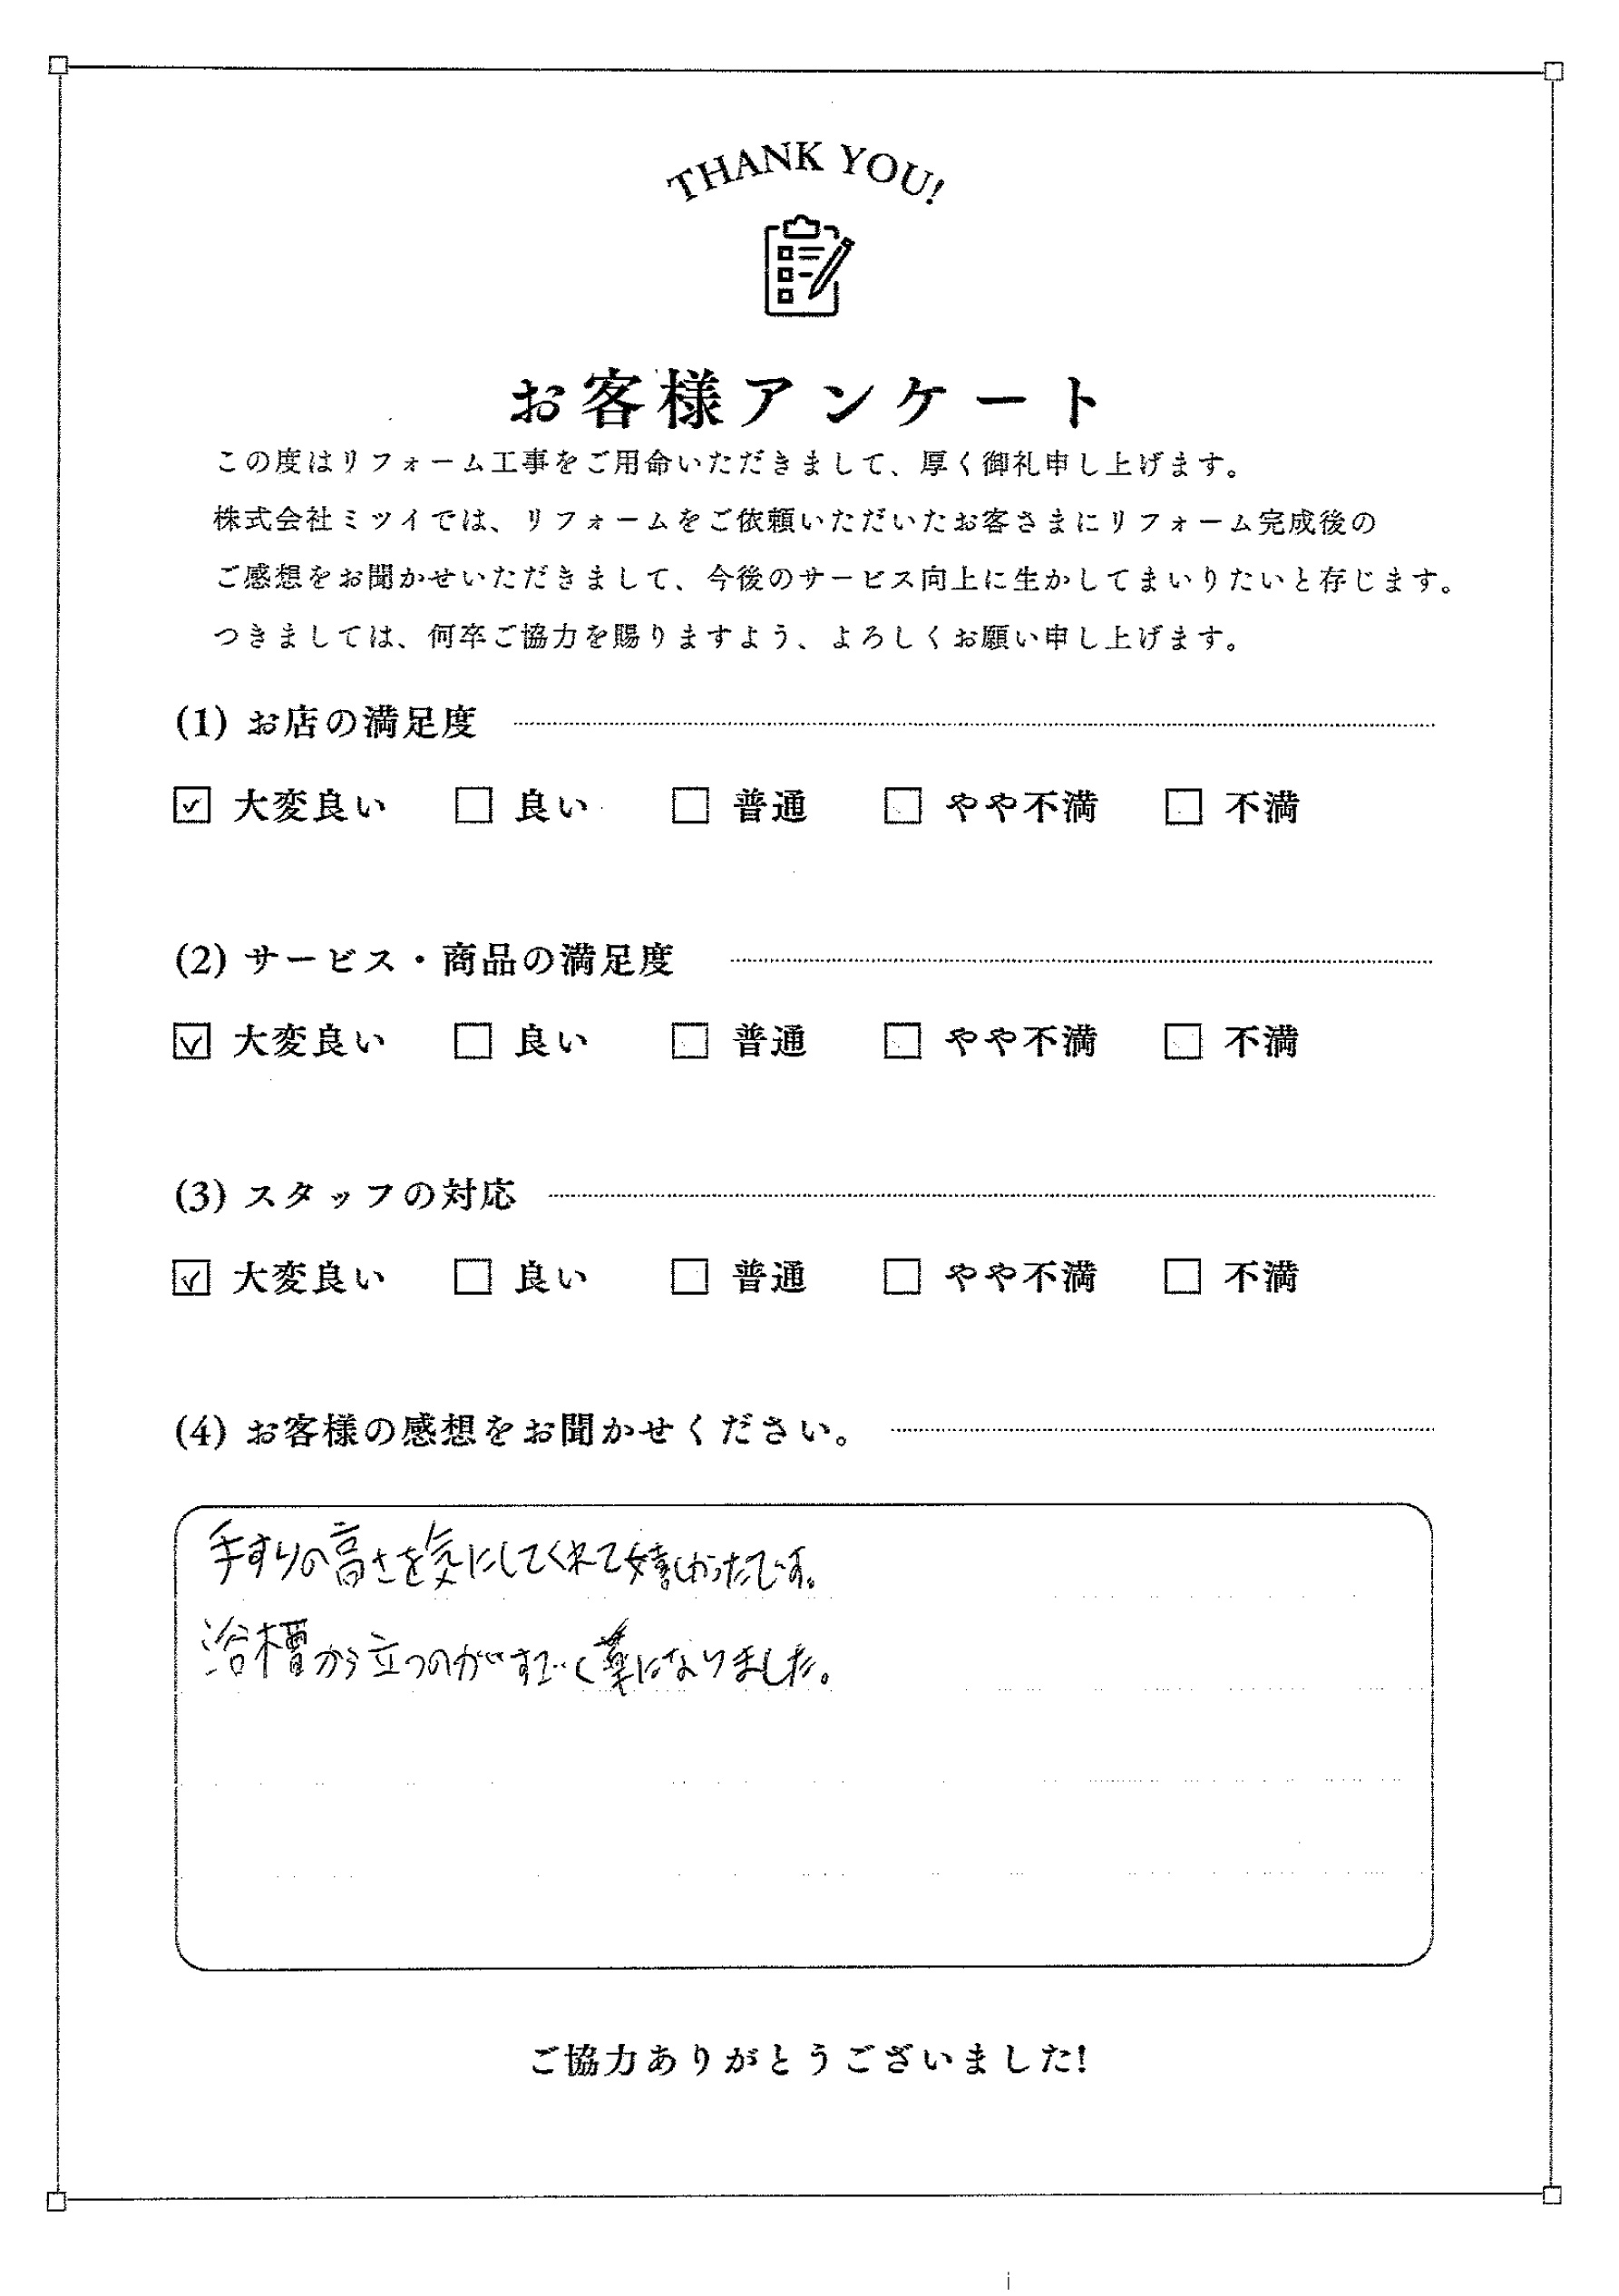 THANK YOU!
お客様アンケート
この度はリフォーム工事をご用命いただきまして、厚く御礼申し上げます。
株式会社ミツイでは、リフォームをご依頼いただいたお客さまにリフォーム完成後の
ご感想をお聞かせいただきまして、今後のサービス向上に生かしてまいりたいと存じます。
つきましては、何卒ご協力を賜りますよう、よろしくお願い申し上げます。
(1) お店の満足度
☑ 大変良い □ 良い □ 普通 □ やや不満 □ 不満
(2) サービス・商品の満足度
☑ 大変良い □ 良い □ 普通 □ やや不満 □ 不満
(3) スタッフの対応
☑ 大変良い □ 良い □ 普通 □ やや不満 □ 不満
(4) お客様の感想をお聞かせください。
手すりの高さを気にしてくれて嬉しかったです。
浴槽から立つのがすごく楽になりました。
ご協力ありがとうございました!